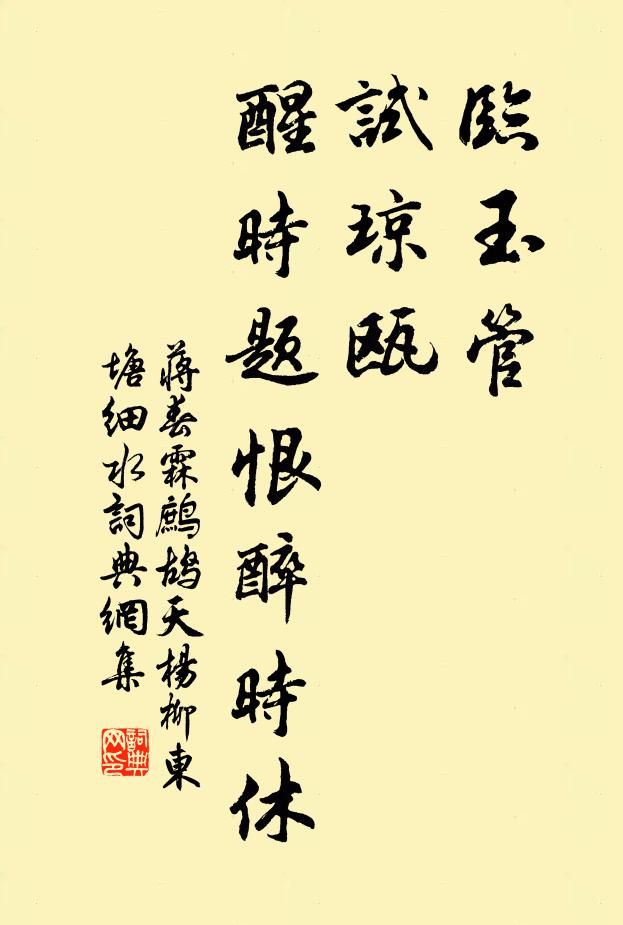 臨玉管
試琼甌
醒時題恨醉時休
蔣春霖鷓鴣天楊柳東
塘細水詞典網集
詞典
网印